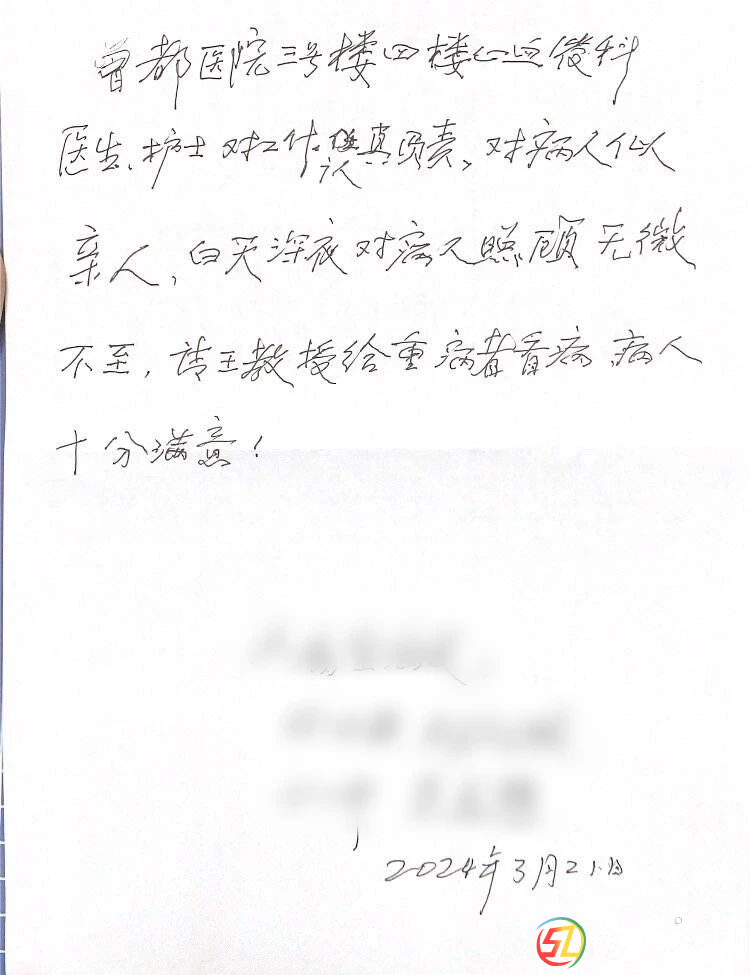 曾都医院三号楼四楼心血管科
医生、护士对工作认真负责,对病人似
亲人,白天深夜对病人照顾无微
不至,请王教授给重病者看病,病人
十分满意!
2024年3月21日